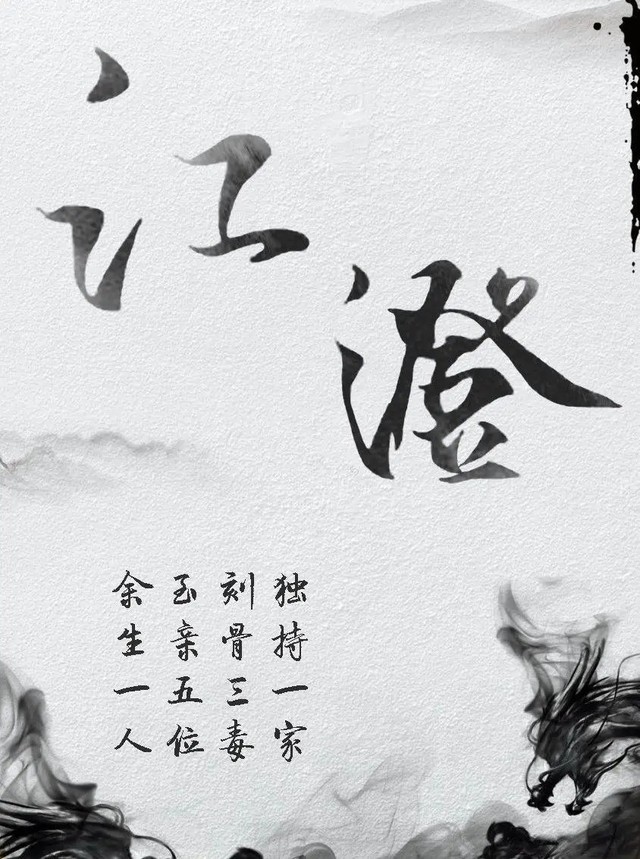 江澄
独持一家
刻骨三毒
至亲五位
余生一人